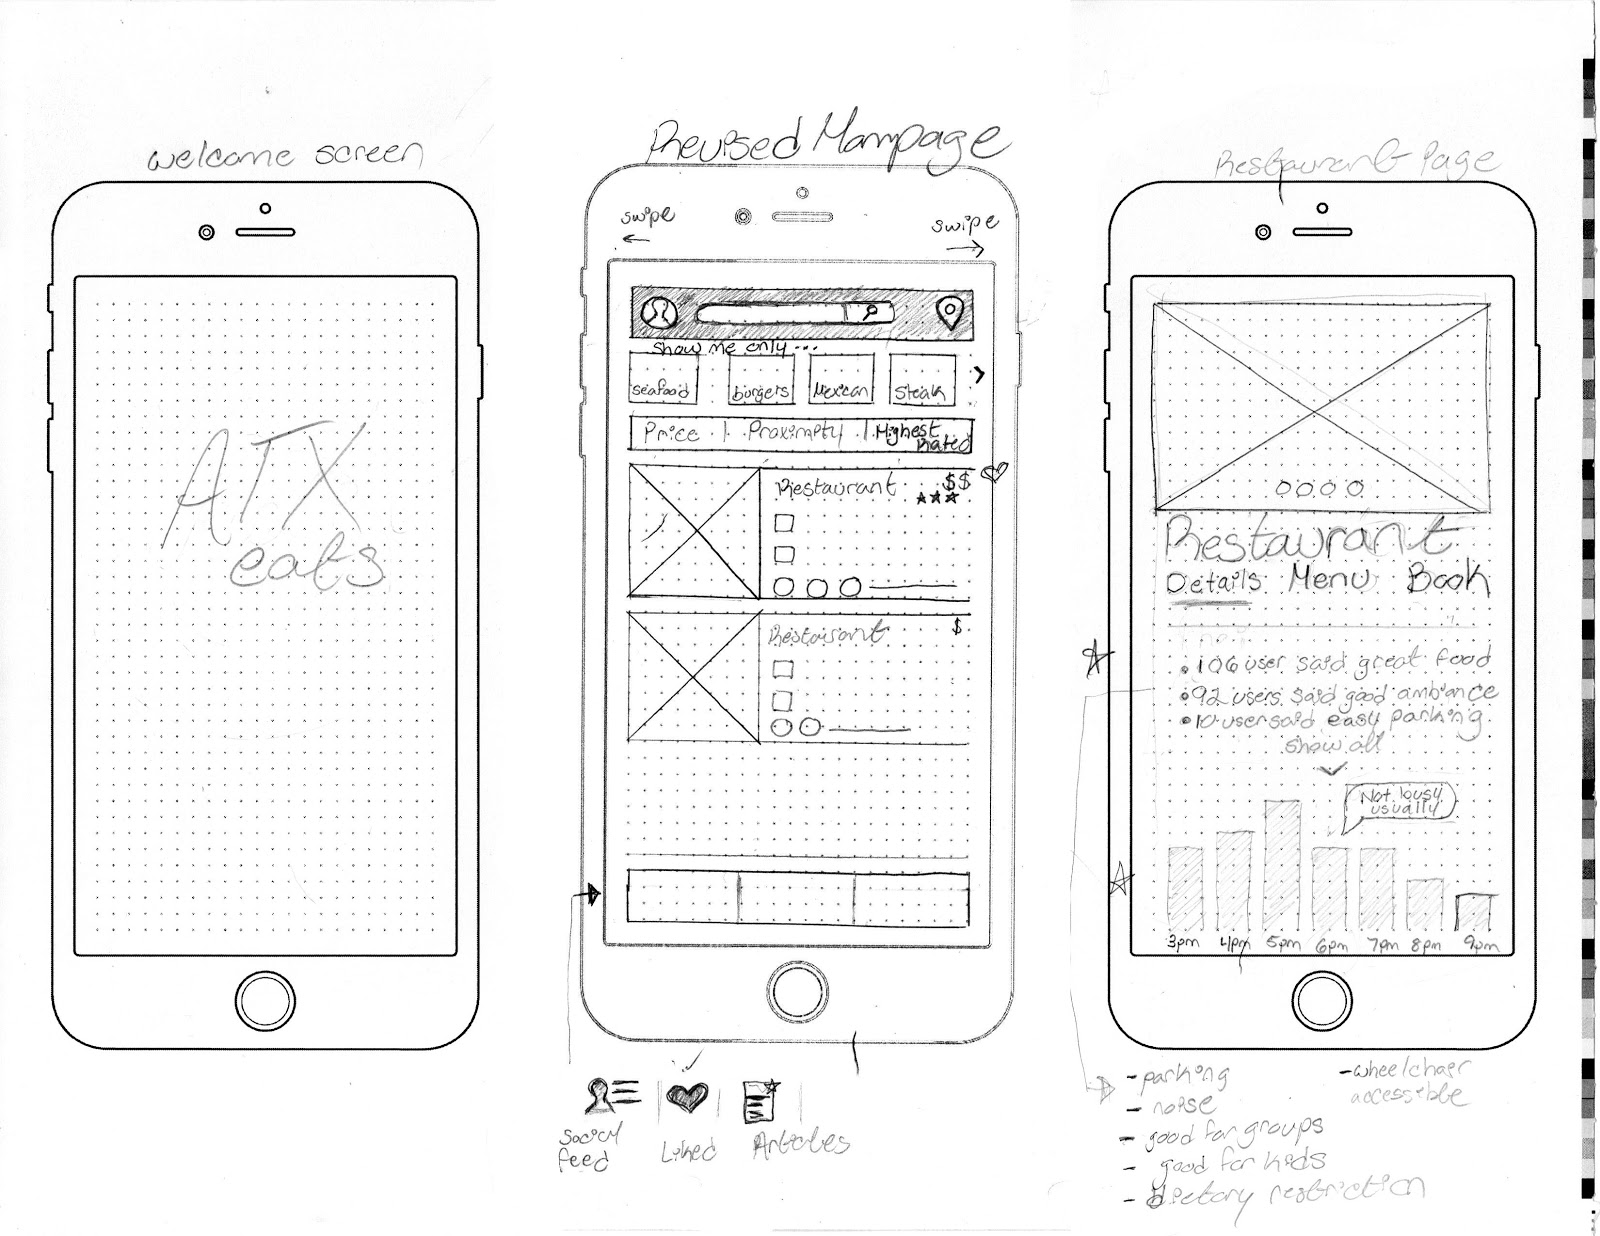 welcome screen
ATX
eats
Revised Mainpage
swipe
swipe
show me only...
seafood
burgers
Mexican
Steak
Price | Proximity | Highest
Rated
Restaurant $$
Restaurant $
Social
feed
Liked
Articles
Restaurant Page
Restaurant
Details Menu Book
• 106 user said great food
• 92 users said good ambiance
• 10 user said easy parking
show all
Not busy
usually
3pm 4pm 5pm 6pm 7pm 8pm 9pm
- parking
- noise
- good for groups
- good for kids
- dietary restriction
- wheelchair
accessible